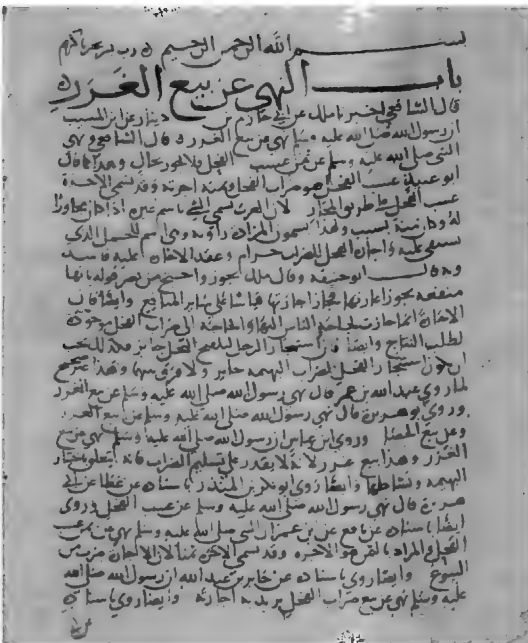 بسم الله الرحمن الرحيم رب يسر يا كريم
باب النهي عن بيع الغرر
قال الشافعي اخبرنا ملك عن ابي حازم بن دينار عن ابن المسيب
ان رسول الله صلى الله عليه وسلم نهى عن بيع الغرر قال الشافعي ونهى
النبي صلى الله عليه وسلم عن ثمن عسب الفحل ولا يجوز بحال وهذا كما قال
ابو عبيد عسب الفحل هو ضراب الفحل وعنده اجرته وقد تسمى الاجرة
عسب الفحل على طريق المجاز لان العرب تسمي الشي باسم غيره اذا كان مجاورا
له وكان منه بسبب ولهذا يسمون المزادة راوية وهي اسم للجمل الذي
يستقى عليه واجارة الفحل للضراب حرام وعقد الاجارة عليه فاسد
وبه قال ابو حنيفة وقال ملك يجوز واحتج من نصر قوله بانها
منفعة يجوز اعارتها فجاز اجارتها قياسا على ساير المنافع وايضا فان
الاجارة انما جازت لحاجة الناس اليها والحاجة الى ضراب الفحل موجودة
لطلب النتاج وايضا فان استيجار الرجل لتلقيح النخل جايز فكذلك يجب
ان يكون استيجار الفحل لضراب البهيمة جايز ولا فرق بينهما وهذا غير صحيح
لما روى عبد الله بن عمر قال نهى رسول الله صلى الله عليه وسلم عن بيع الغرر
وروى ابو هريرة قال نهى رسول الله صلى الله عليه وسلم عن بيع الغرر
وعن بيع الحصا وروى ابن عباس ان رسول الله صلى الله عليه وسلم نهى عن بيع
الغرر وهذا بيع غرر لانه لا يقدر على تسليم الضراب فانه يتعلق باختيار
البهيمة ونشاطها وايضا روى ابو بكر بن المنذر باسناده عن عطا عن ابي
هريرة قال نهى رسول الله صلى الله عليه وسلم عن عسب الفحل وروى
ايضا باسناده عن نافع عن بن عمر ان النبي صلى الله عليه وسلم نهى عن ثمن عسب
الفحل والمراد بالثمن هو الاجرة وقد تسمى الاجرة ثمنا لان الاجارة ضرب من
البيوع وايضا روى باسناده عن جابر بن عبد الله ان رسول الله صلى الله
عليه وسلم نهى عن بيع ضراب الفحل يريد به اجارته وايضا روى باسناده
عن